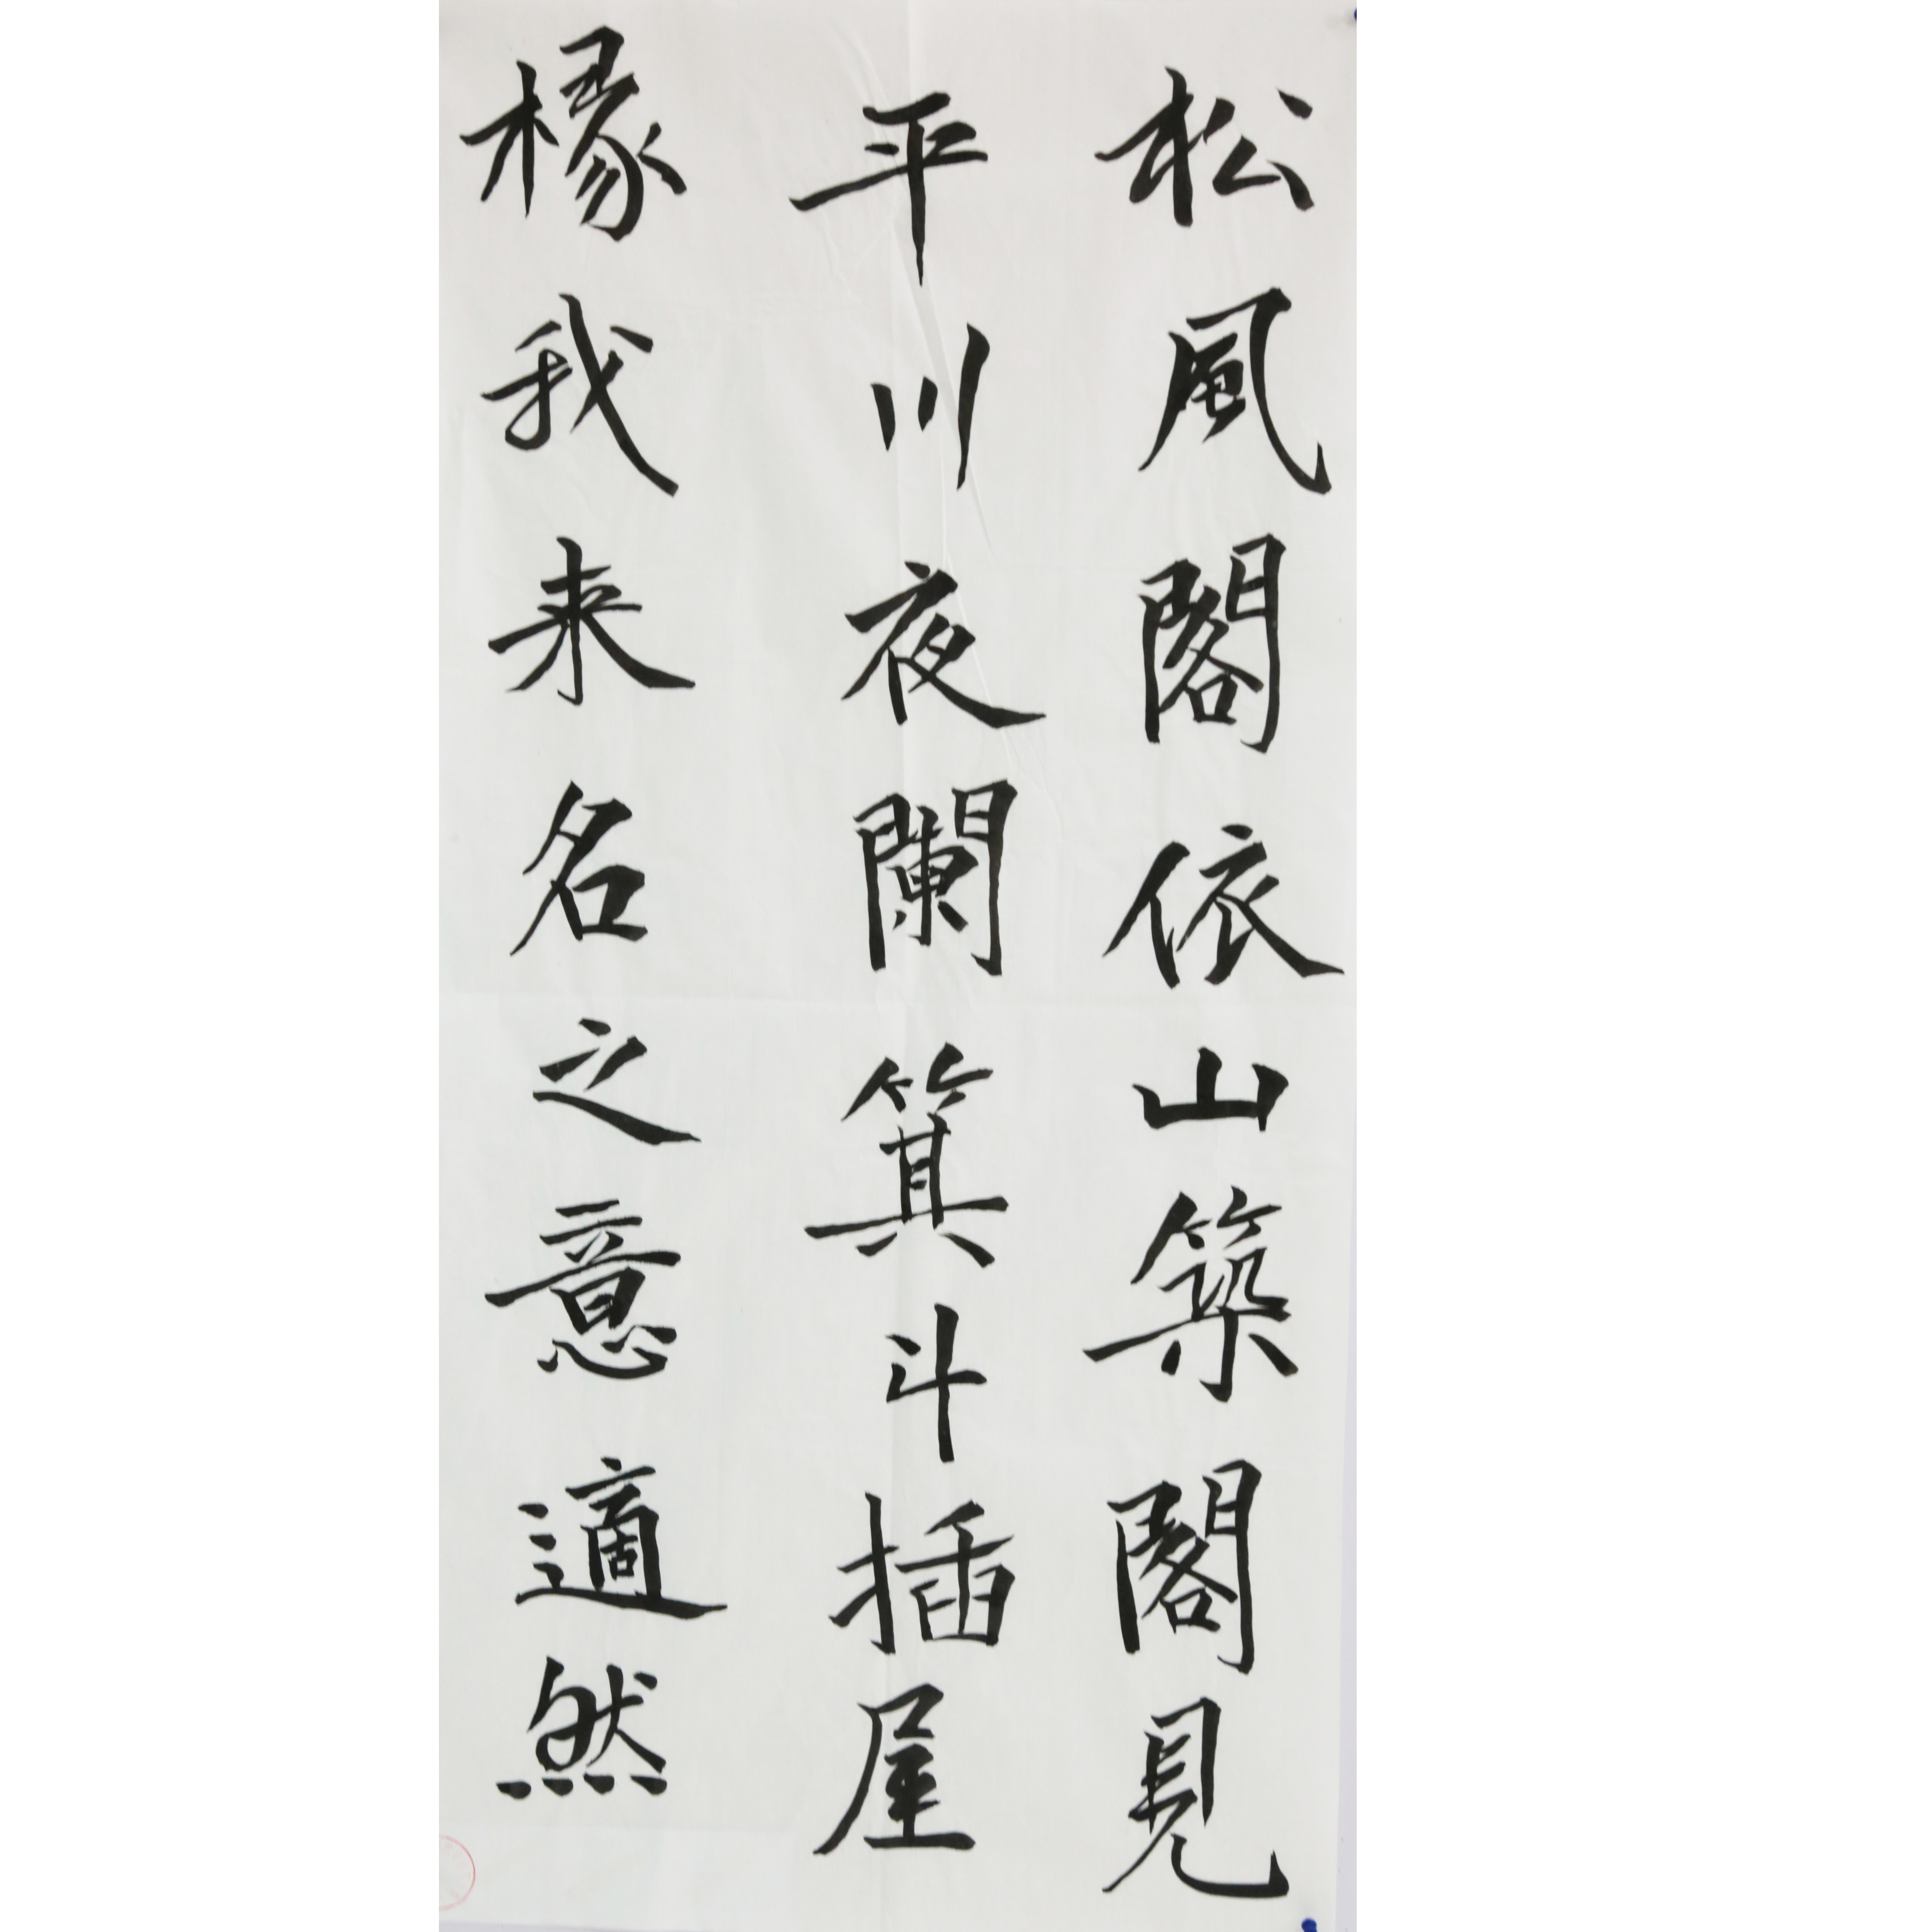 松風閣依山築閣見
平川夜闌箕斗插屋
椽我来名之意適然